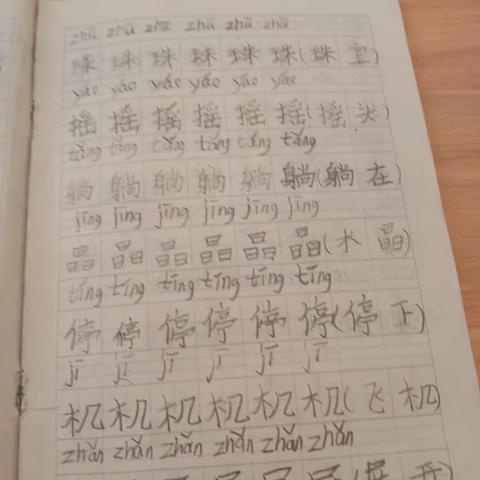 zhū zhū zhū zhū zhū zhū
珠 珠 珠 珠 珠 珠(珠 宝)
yáo yáo yáo yáo yáo yáo
摇 摇 摇 摇 摇 摇(摇 头)
tǎng tǎng tǎng tǎng tǎng tǎng
躺 躺 躺 躺 躺 躺(躺 在)
jīng jīng jīng jīng jīng jīng
晶 晶 晶 晶 晶 晶(水 晶)
tīng tīng tīng tīng tīng tīng
停 停 停 停 停 停(停 正)
jī jī jī jī jī jī
机 机 机 机 机 机(飞 机)
zhǎn zhǎn zhǎn zhǎn zhǎn zhǎn
(展 开)